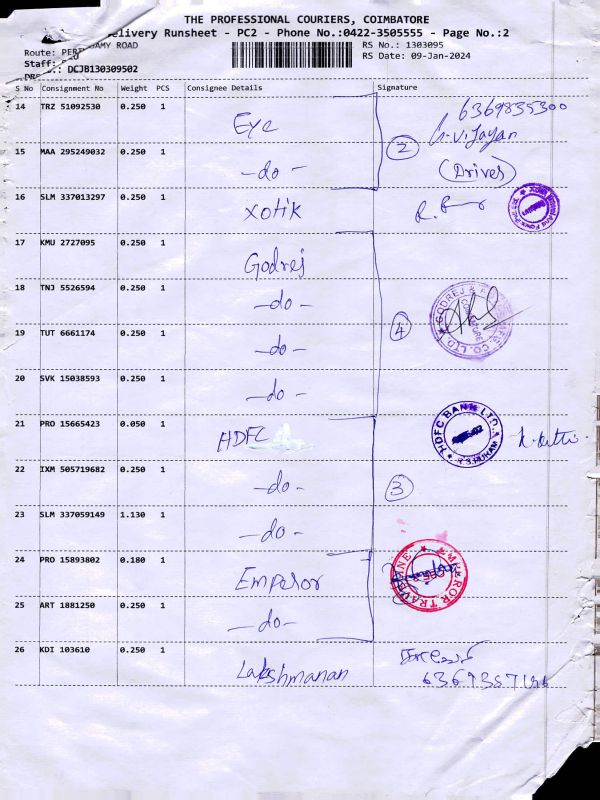 THE PROFESSIONAL COURIERS, COIMBATORE
elivery Runsheet - PC2 - Phone No.:0422-3505555 - Page No.:2
Route: PER AMY ROAD
RS No.: 1303095
Staff:
RS Date: 09-Jan-2024
DCJB130309502
S No Consignment No Weight PCS Consignee Details Signature
14 TRZ 51092530 0.250 1 Eye 6369835300
15 MAA 295249032 0.250 1 -do- 2 (Driver)
16 SLM 337013297 0.250 1 Xotik
17 KMU 2727095 0.250 1 Godrej
18 TNJ 5526594 0.250 1 -do- GODREJ &
19 TUT 6661174 0.250 1 -do- 4 CO. LTD.
20 SVK 15038593 0.250 1 -do-
21 PRO 15665423 0.050 1 HDFC HDFC BANK LTD. R.S.PURAM
22 IXM 505719682 0.250 1 -do- 3
23 SLM 337059149 1.130 1 -do-
24 PRO 15893802 0.180 1 Emperor
25 ART 1881250 0.250 1 -do-
26 KDI 103610 0.250 1 Lakshmanan